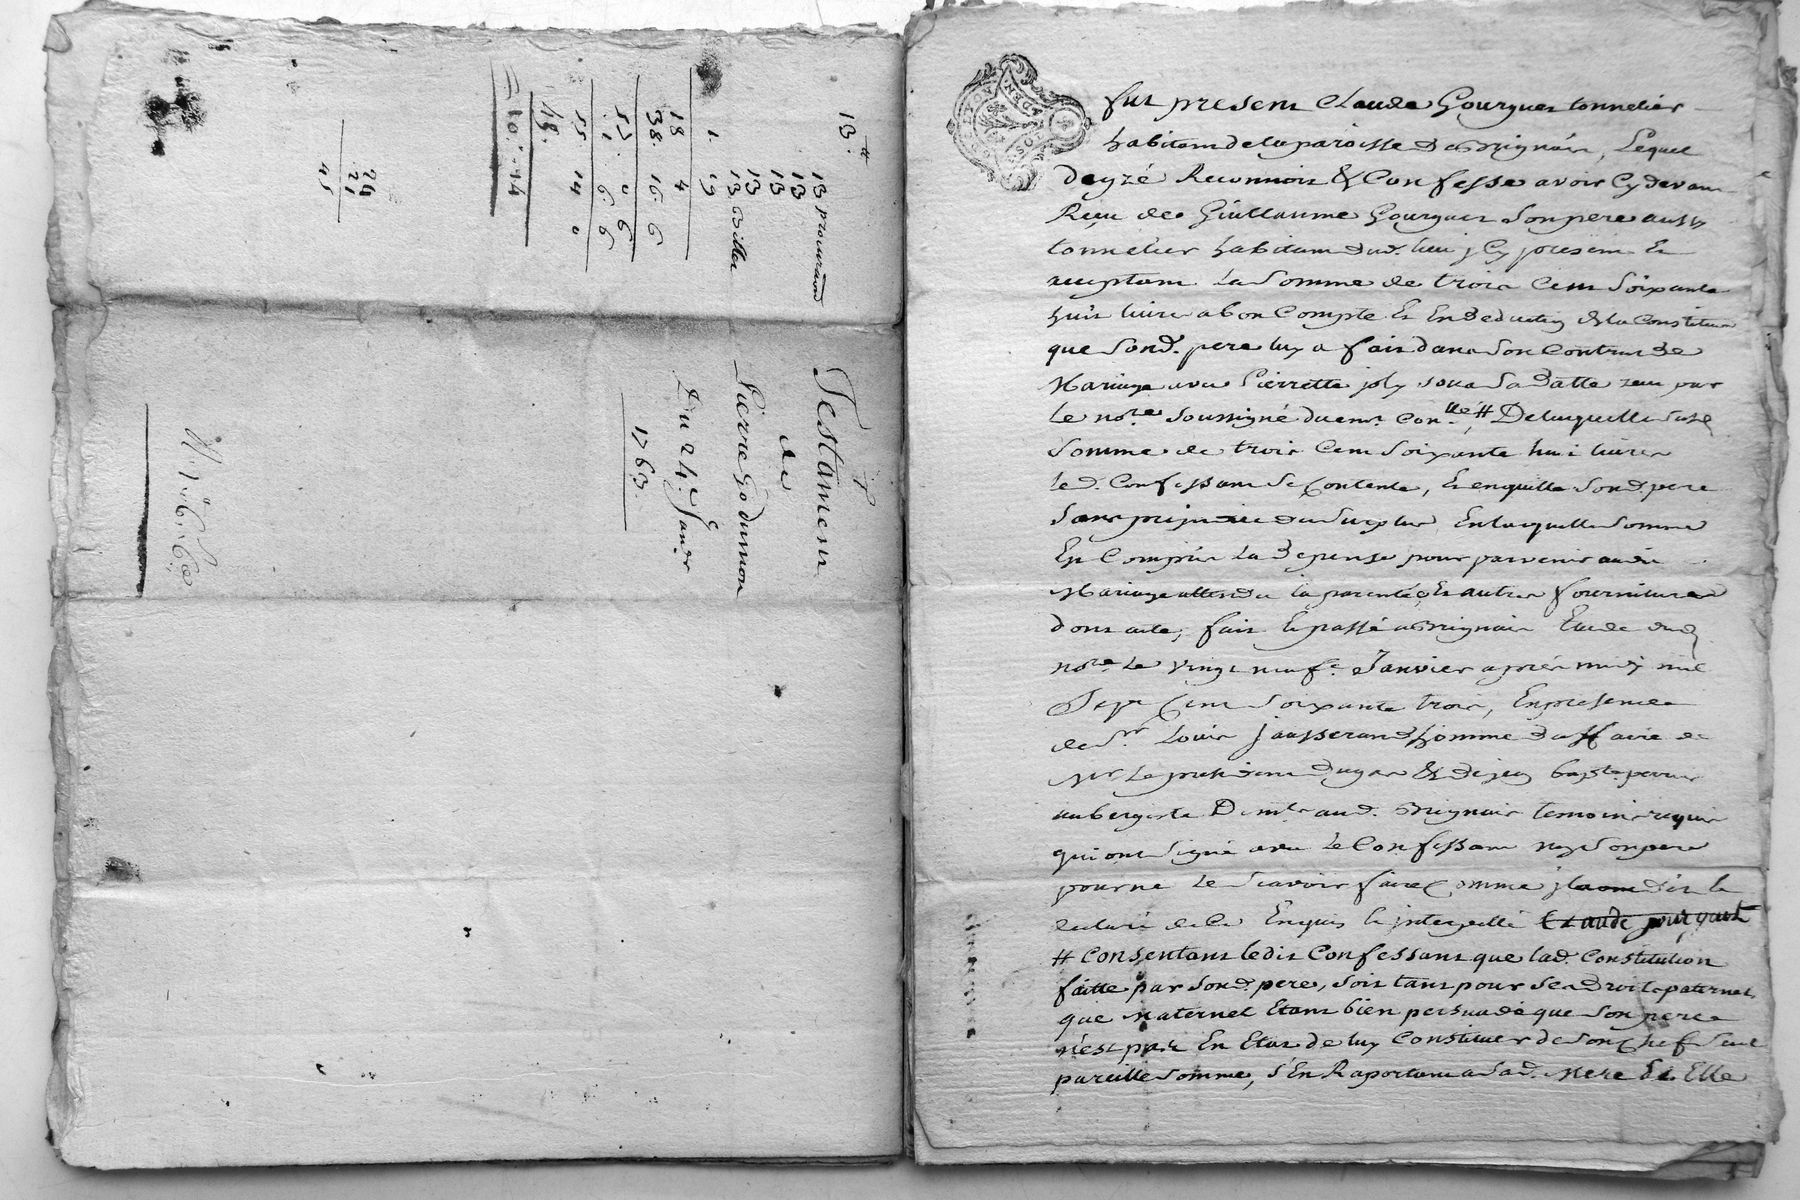 13.tt
13 procuration
13
13
13
1. 19 13 Billet
18 4
38. 16. 6
53. 0 6
. 1. 6. 6
55 14 0
48.
10. 44
24
21
45
Testament
de
Pierre Godumon
Du 24e Janv.r
1763.
fut present Claude Gourguet tonnelier
habitant de la paroisse de Brignais, Lequel
de gré Reconnoit & Confesse avoir Cy devant
Reçu de Guillaume Gourguet son pere aussy
tonnelier habitant dud. lieu Cy present Et
acceptant la somme de trois Cent Soixante
huit livres a bon Compte Et En deduction de la Constitution
que Sond. pere luy a fait dans Son Contrat de
Mariage avec Pierrette joly sous Sa datte reçu par
Le no.re Soussigné duem.t Con.llé # De laquelle Susd.
Somme de trois Cent Soixante huit livres
led. Confessant Se Contente, Et en quitte Sond. pere
Sans prejudice du Surplus En laquelle Somme
Est Comprise la depense pour parvenir audit
Mariage la parenté, Et autres fournitures
dont acte, fait Et passé a Brignais Etude dud.
no.re Le vingt neuf.e Janvier après midy mil
Sept Cent Soixante trois, En presence
de S.r Louis Jausserand homme d'affaire de
M.r Le president Dugas & de jean bapt.e perrin
aubergiste Dem.t aud. Brignais temoins requis
qui ont Signé avec Le Confessant non Son pere
pour ne le Scavoir faire Comme il a dit Et
declaré de Ce Enquis Et interpellé Claude gourguet
# Consentant ledit Confessant que lad. Constitution
faitte par Sond. pere, Soit tant pour Ses Droits paternel
que Maternel Etant bien persuadé que Son pere
n'est pas En Etat de luy Constituer de Son Chef Seul
pareille Somme, S'En Raportant a Sad. Mere Et Elle